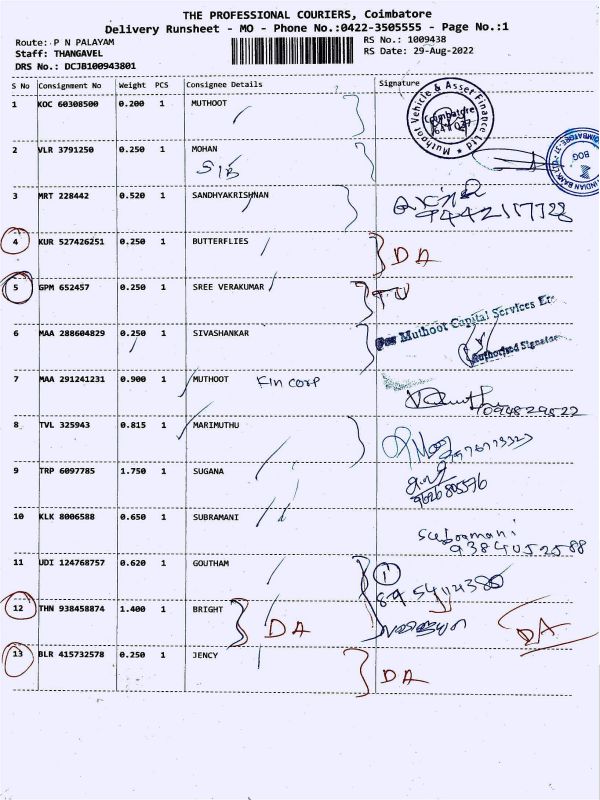 THE PROFESSIONAL COURIERS, Coimbatore
Delivery Runsheet - MO - Phone No.:0422-3505555 - Page No.:1
Route: P N PALAYAM RS No.: 1009438
Staff: THANGAVEL RS Date: 29-Aug-2022
DRS No.: DCJB100943801
S No Consignment No Weight PCS Consignee Details Signature
1 KOC 60308500 0.200 1 MUTHOOT
Muthoot Vehicle & Asset Finance Ltd
Coimbatore
2 VLR 3791250 0.250 1 MOHAN
SIB
INDIAN BANK
BOG
3 MRT 228442 0.520 1 SANDHYAKRISHNAN
4 KUR 527426251 0.250 1 BUTTERFLIES DA
5 GPM 652457 0.250 1 SREE VERAKUMAR
For Muthoot Capital Services
6 MAA 288604829 0.250 1 SIVASHANKAR
Authorised Signator
7 MAA 291241231 0.900 1 MUTHOOT Fin corp
8 TVL 325943 0.815 1 MARIMUTHU
9 TRP 6097785 1.750 1 SUGANA
10 KLK 8006588 0.650 1 SUBRAMANI
Subramani
9384052588
11 UDI 124768757 0.620 1 GOUTHAM 1
12 THN 938458874 1.400 1 BRIGHT DA DA
13 BLR 415732578 0.250 1 JENCY DA